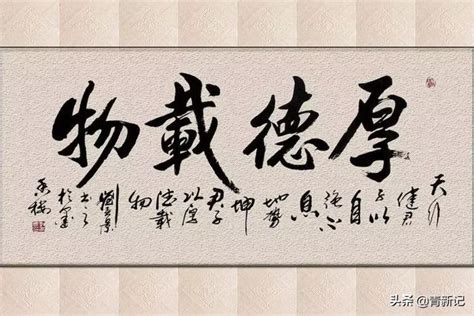 厚德載物
天行
健君
子以
自
強不
息
地勢
坤
君子
以厚
德載
物
劉
書之
於墨
头条 @箐新记